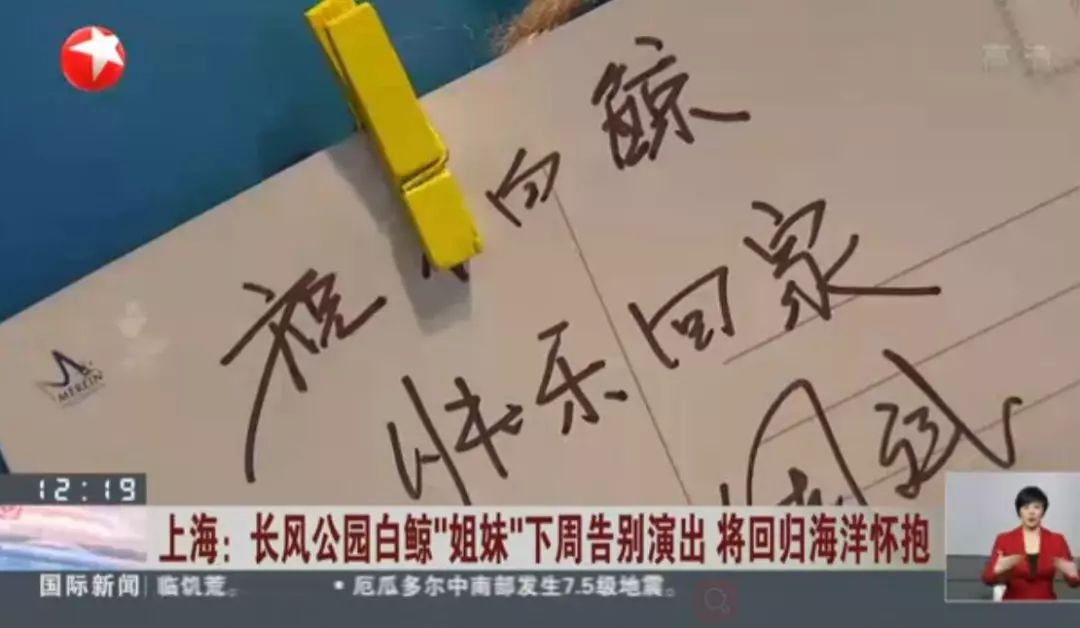 高清
祝小白鲸
快乐回家
MERLIN
12:19
上海：长风公园白鲸"姐妹"下周告别演出 将回归海洋怀抱
国际新闻 临饥荒。 • 厄瓜多尔中南部发生7.5级地震。